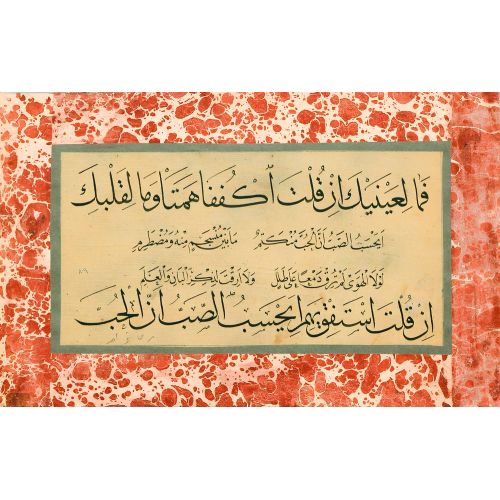 فما لعينيك ان قلت اكففا همتا وما لقلبك
ايحسب الصب ان الحب منكتم ما بين منسجم منه ومضطرم
لولا الهوى لم ترق دمعا على طلل ولا ارقت لذكر البان والعلم
ان قلت استفق يهم ايحسب الصب ان الحب